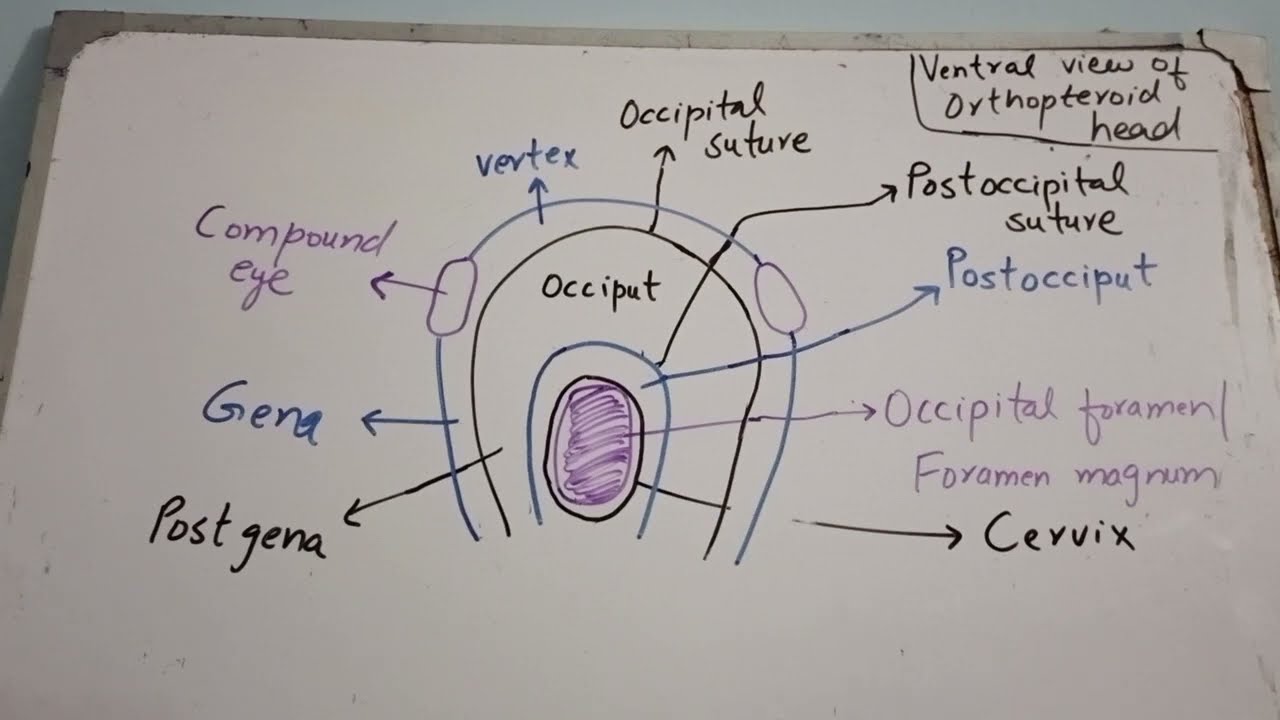 Ventral view of
Orthopteroid
head
Occipital
suture
vertex
Postoccipital
suture
Compound
eye
Postocciput
Occiput
Gena
Occipital foramen/
Foramen magnum
Post gena
Cervix